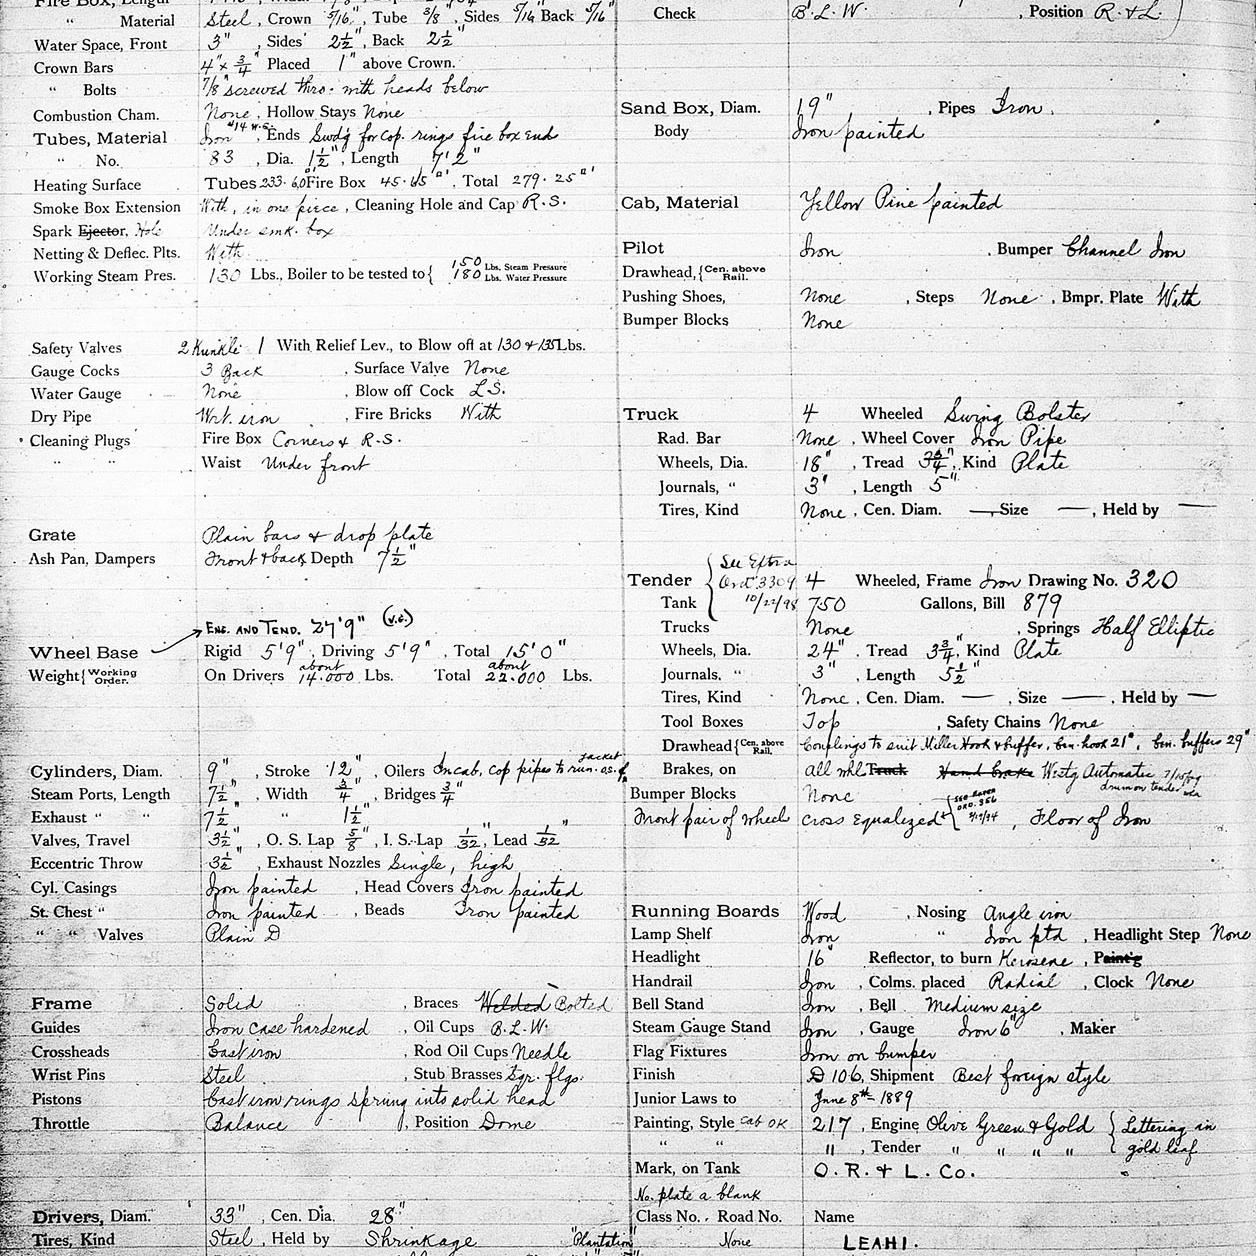 Material Steel, Crown 5/16", Tube 3/8", Sides 5/16" Back 5/16"
Water Space, Front 3", Sides 2 1/2", Back 2 1/2"
Crown Bars 4" x 3/4" Placed 1" above Crown.
" Bolts 7/8" screwed thro. with heads below
Combustion Cham. None, Hollow Stays None
Tubes, Material Iron #14 W.G., Ends Swd'g for cop. rings fire box end
" No. 83, Dia. 1 1/2", Length 7' 2"
Heating Surface Tubes 233.60 Fire Box 45.65, Total 279.25
Smoke Box Extension With, in one piece, Cleaning Hole and Cap R.S.
Spark Ejector, Hole Under smk. box
Netting & Deflec. Plts. With
Working Steam Pres. 130 Lbs., Boiler to be tested to { 150 Lbs. Steam Pressure 180 Lbs. Water Pressure
Safety Valves 2 Kunkle 1 With Relief Lev., to Blow off at 130 & 135 Lbs.
Gauge Cocks 3 Back, Surface Valve None
Water Gauge None, Blow off Cock L.S.
Dry Pipe Wrt. iron, Fire Bricks With
Cleaning Plugs Fire Box Corners & R.S.
" " Waist Under front
Grate Plain bars & drop plate
Ash Pan, Dampers Front & back Depth 7 1/2"
ENG. AND TEND. 27'9" (V.G.)
Wheel Base Rigid 5'9", Driving 5'9", Total 15'0"
Weight { Working Order. On Drivers about 14.000 Lbs. Total about 22.000 Lbs.
Cylinders, Diam. 9", Stroke 12", Oilers In cab, cop pipes to run. as. jacket
Steam Ports, Length 7 1/2", Width 3/4", Bridges 3/4"
Exhaust " " 7 1/2" " 1 1/2"
Valves, Travel 3 1/2", O. S. Lap 5/8", I. S. Lap 1/32", Lead 1/32"
Eccentric Throw 3 1/2", Exhaust Nozzles Single, high
Cyl. Casings Iron painted, Head Covers Iron painted
St. Chest " Iron painted, Beads Iron painted
" " Valves Plain D
Frame Solid, Braces Welded Bolted
Guides Iron case hardened, Oil Cups B.L.W.
Crossheads Cast iron, Rod Oil Cups Needle
Wrist Pins Steel, Stub Brasses Sqr. flgs.
Pistons Cast iron rings sprung into solid head
Throttle Balance, Position Dome
Drivers, Diam. 33", Cen. Dia. 28"
Tires, Kind Steel, Held by Shrinkage "Plantation"
Check B.L.W., Position R. & L.
Sand Box, Diam. 19", Pipes Iron.
Body Iron painted
Cab, Material Yellow Pine painted
Pilot Iron, Bumper Channel Iron
Drawhead, { Cen. above Rail.
Pushing Shoes, None, Steps None, Bmpr. Plate With
Bumper Blocks None
Truck 4 Wheeled Swing Bolster
Rad. Bar None, Wheel Cover Iron Pipe
Wheels, Dia. 18", Tread 3 3/4", Kind Plate
Journals, " 3", Length 5"
Tires, Kind None, Cen. Diam. —, Size —, Held by —
See Extra
Tender Ord 3309 4 Wheeled, Frame Iron Drawing No. 320
Tank 10/22/98 750 Gallons, Bill 879
Trucks None, Springs Half Elliptic
Wheels, Dia. 24", Tread 3 3/4", Kind Plate
Journals, " 3", Length 5 1/2"
Tires, Kind None, Cen. Diam. —, Size —, Held by —
Tool Boxes Top, Safety Chains None
Drawhead { Cen. above Rail. Couplings to suit Miller Hook & buffer, cen. hook 21", cen. buffers 29"
Brakes, on All whl Truck Hand brake Westg Automatic drum on tender
Bumper Blocks None
Front pair of wheels cross Equalized { SEE EXTRA ORD. 356, Floor of Iron
Running Boards Wood, Nosing Angle iron
Lamp Shelf Iron " Iron ptd, Headlight Step None
Headlight 16" Reflector, to burn Kerosene, Paint'g
Handrail Iron, Colms. placed Radial, Clock None
Bell Stand Iron, Bell Medium size
Steam Gauge Stand Iron, Gauge Iron 6", Maker
Flag Fixtures Iron on bumper
Finish D 106, Shipment Best foreign style
Junior Laws to June 8th - 1889
Painting, Style Cab OK 217, Engine Olive Green & Gold { Lettering in
" " ", Tender " " " " gold leaf
Mark, on Tank O. R. & L. Co.
No. plate a blank
Class No., Road No. Name
None LEAHI.